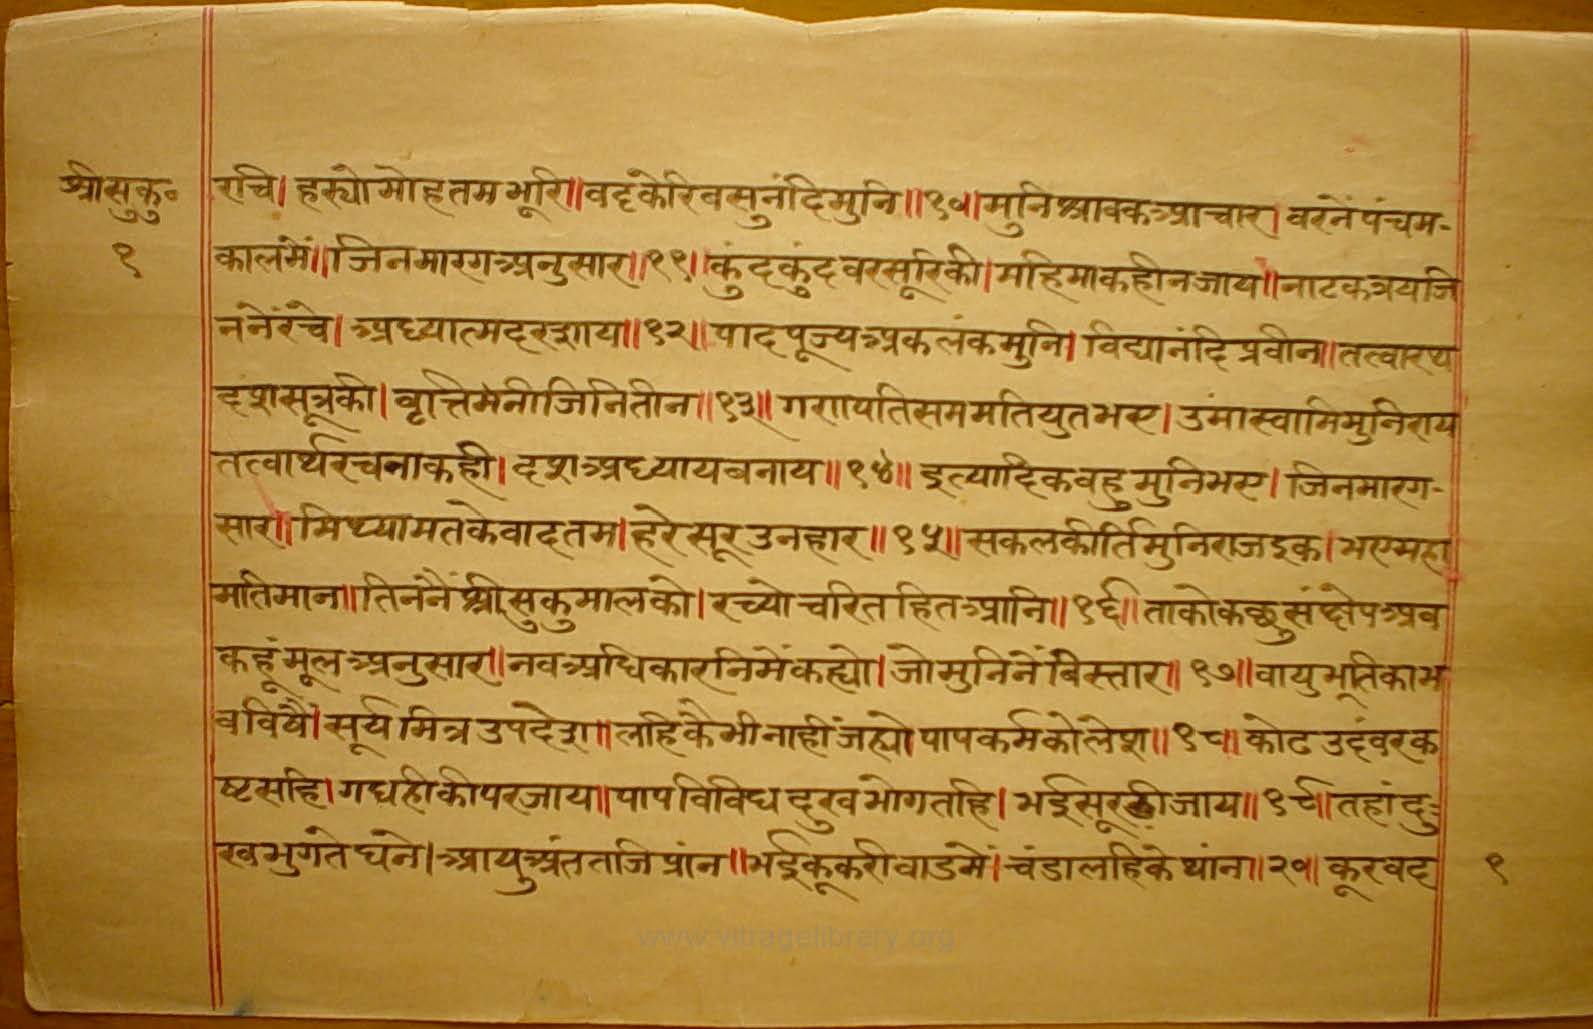 श्रीसुकु॰
१
रचि। हस्यो मोह तम भूरि॥ वट्टकेरि वसुनंदि मुनि॥१०॥ मुनि श्रावक आचार। वरनें पंचम-
काल में॥ जिन मारग अनुसार॥११॥ कुंदकुंद वर सूरि की। महिमा कही न जाय॥ नाटक त्रय जि
ननें रचे। अध्यात्म दरशाय॥१२॥ पाद पूज्य अकलंक मुनि। विद्यानंदि प्रवीन॥ तत्वारथ
दश सूत्र की। वृत्ति मनी जिनि तीन॥१३॥ गणपति सम मति युत भए। उमास्वामि मुनिराय
तत्वार्थ रचना कही। दश अध्याय बनाय॥१४॥ इत्यादिक वहु मुनि भए। जिन मारग-
सार॥ मिथ्या मत के वाद तम। हरे सूर उनहार॥१५॥ सकलकीर्ति मुनिराज इक। भए महा
मतिमान॥ तिननैं श्री सुकुमाल को। रच्यो चरित हित आनि॥१६॥ ताको कछु संक्षेप अव
कहूं मूल अनुसार॥ नव अधिकारनि में कह्यो। जो मुनि नें विस्तार॥१७॥ वायुभूति का भ
व विषैं। सूर्यमित्र उपदेश॥ लहिकै भी नाहीं जह्यो पाप कर्म को लेश॥१८॥ कोढ उदंवर क
ष्ट सहि। गधही की परजाय॥ पाप विविध दुख भोग तहि। भई सूरडी जाय॥१९॥ तहां दु-
ख भुगते घने। आयु अंत तजि प्रांन॥ भई कूकरी वाड में। चंडालहि के थांन॥२०॥ कूर वद
१
www.vitragelibrary.org